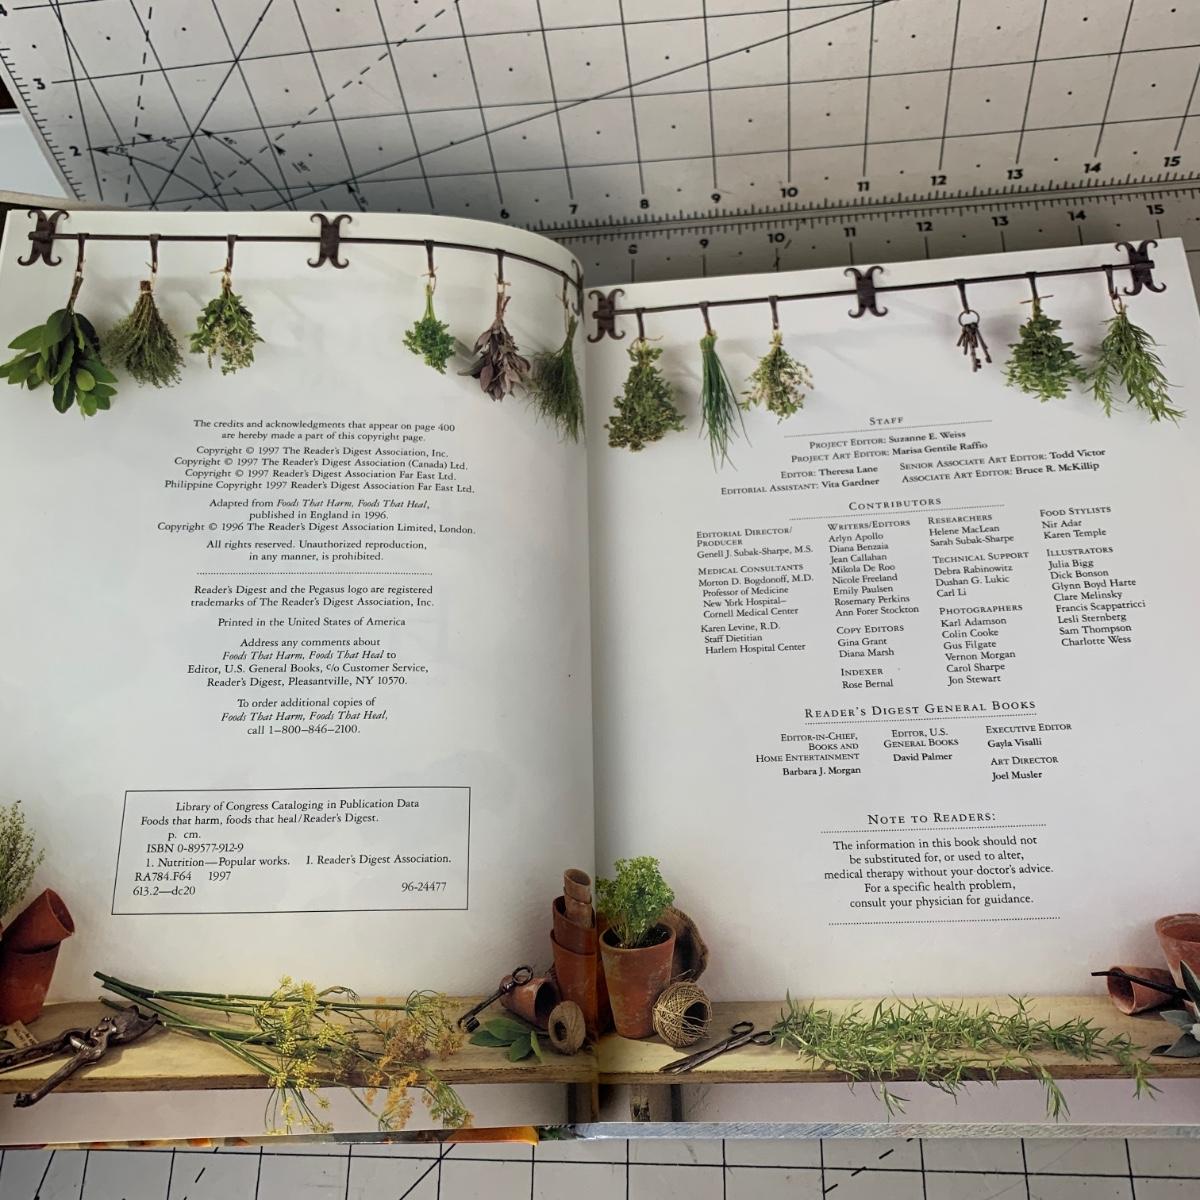 3
2
6
7
8
9
10
11
12
13
14
15
8
9
10
11
12
13
14
15
The credits and acknowledgments that appear on page 400
are hereby made a part of this copyright page.
Copyright © 1997 The Reader's Digest Association, Inc.
Copyright © 1997 The Reader's Digest Association (Canada) Ltd.
Copyright © 1997 Reader's Digest Association Far East Ltd.
Philippine Copyright 1997 Reader's Digest Association Far East Ltd.
Adapted from Foods That Harm, Foods That Heal,
published in England in 1996.
Copyright © 1996 The Reader's Digest Association Limited, London.
All rights reserved. Unauthorized reproduction,
in any manner, is prohibited.
Reader's Digest and the Pegasus logo are registered
trademarks of The Reader's Digest Association, Inc.
Printed in the United States of America
Address any comments about
Foods That Harm, Foods That Heal to
Editor, U.S. General Books, c/o Customer Service,
Reader's Digest, Pleasantville, NY 10570.
To order additional copies of
Foods That Harm, Foods That Heal,
call 1–800–846–2100.
Library of Congress Cataloging in Publication Data
Foods that harm, foods that heal/Reader's Digest.
p. cm.
ISBN 0-89577-912-9
1. Nutrition—Popular works. I. Reader's Digest Association.
RA784.F64 1997
613.2—dc20 96-24477
STAFF
PROJECT EDITOR: Suzanne E. Weiss
PROJECT ART EDITOR: Marisa Gentile Raffio
EDITOR: Theresa Lane SENIOR ASSOCIATE ART EDITOR: Todd Victor
EDITORIAL ASSISTANT: Vita Gardner ASSOCIATE ART EDITOR: Bruce R. McKillip
CONTRIBUTORS
EDITORIAL DIRECTOR/
PRODUCER
Genell J. Subak-Sharpe, M.S.
MEDICAL CONSULTANTS
Morton D. Bogdonoff, M.D.
Professor of Medicine
New York Hospital–
Cornell Medical Center
Karen Levine, R.D.
Staff Dietitian
Harlem Hospital Center
WRITERS/EDITORS
Arlyn Apollo
Diana Benzaia
Jean Callahan
Mikola De Roo
Nicole Freeland
Emily Paulsen
Rosemary Perkins
Ann Forer Stockton
COPY EDITORS
Gina Grant
Diana Marsh
INDEXER
Rose Bernal
RESEARCHERS
Helene MacLean
Sarah Subak-Sharpe
TECHNICAL SUPPORT
Debra Rabinowitz
Dushan G. Lukic
Carl Li
PHOTOGRAPHERS
Karl Adamson
Colin Cooke
Gus Filgate
Vernon Morgan
Carol Sharpe
Jon Stewart
FOOD STYLISTS
Nir Adar
Karen Temple
ILLUSTRATORS
Julia Bigg
Dick Bonson
Glynn Boyd Harte
Clare Melinsky
Francis Scappatricci
Lesli Sternberg
Sam Thompson
Charlotte Wess
READER'S DIGEST GENERAL BOOKS
EDITOR-IN-CHIEF,
BOOKS AND
HOME ENTERTAINMENT
Barbara J. Morgan
EDITOR, U.S.
GENERAL BOOKS
David Palmer
EXECUTIVE EDITOR
Gayla Visalli
ART DIRECTOR
Joel Musler
NOTE TO READERS:
The information in this book should not
be substituted for, or used to alter,
medical therapy without your doctor's advice.
For a specific health problem,
consult your physician for guidance.